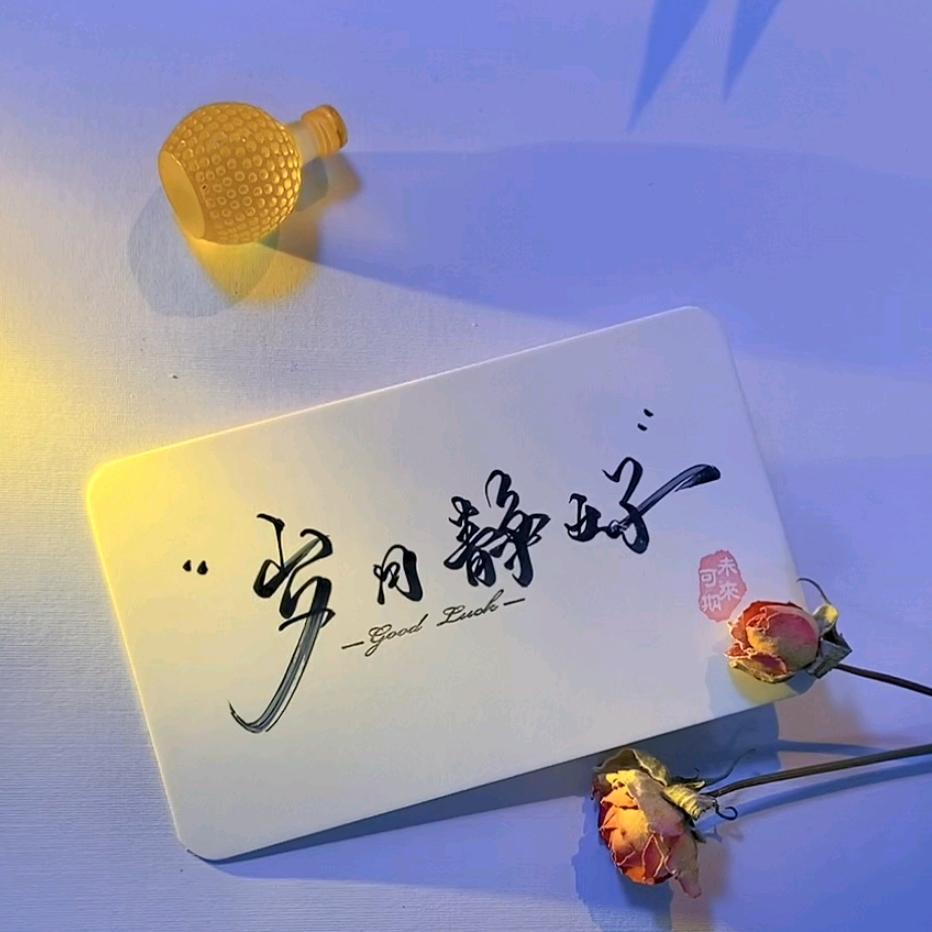 “岁月静好”
—Good Luck—
未來可期